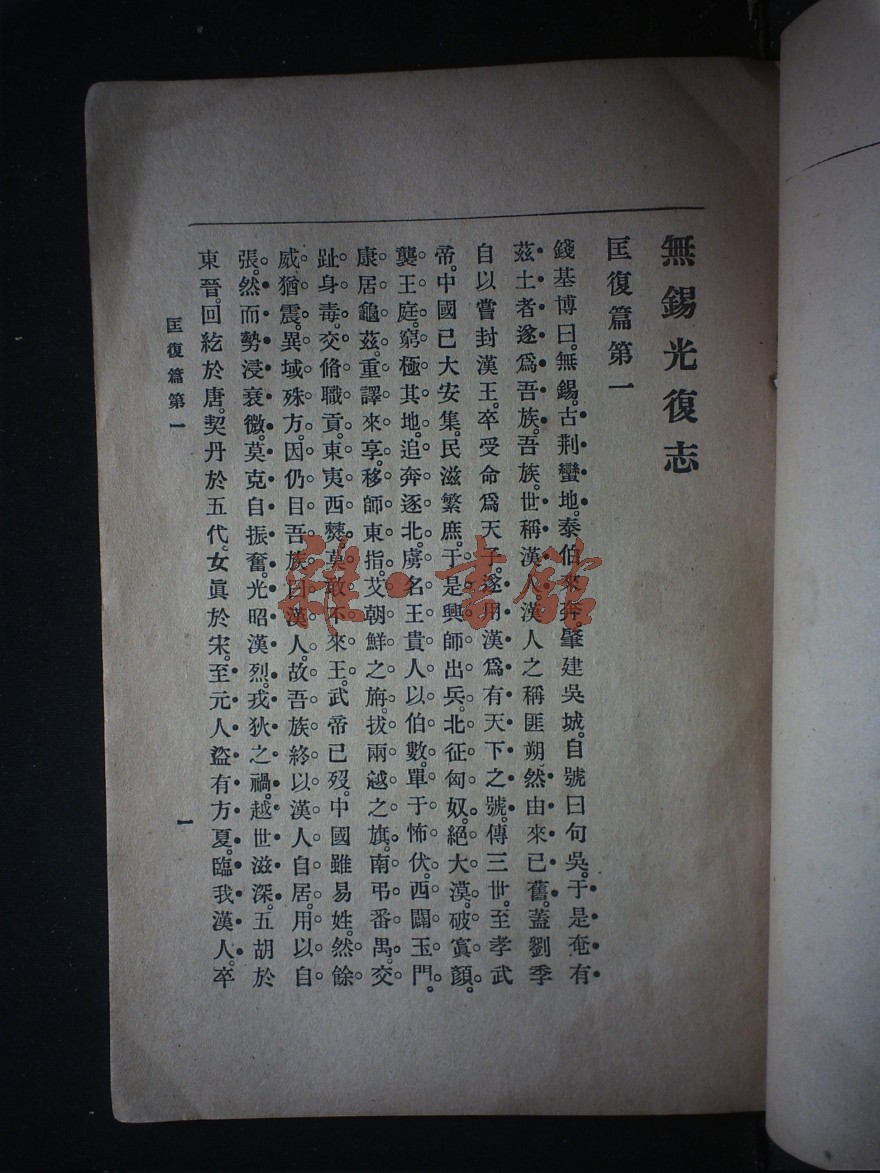 無錫光復志
匡復篇第一
錢基博曰。無錫。古荆蠻地。泰伯來奔。肇建吳城。自號曰句吳。于是奄有
茲土者。遂爲吾族。吾族。世稱漢人。漢人之稱匪朔。然由來已舊。蓋劉季
自以嘗封漢王。卒受命爲天子。遂用漢爲有天下之號。傳三世。至孝武
帝。中國已大安集。民滋繁庶。于是興師出兵。北征匈奴。絕大漠。破寘顏。
襲王庭。窮極其地。追奔逐北。虜名王貴人以伯數。單于怖伏。西闢玉門。
康居龜茲。重譯來享。移師東指。艾朝鮮之旃。拔兩越之旗。南弔番禺。交
趾身毒。交脩職貢。東夷西僰。莫敢不來王。武帝已歿。中國雖易姓。然餘
威猶震。異域殊方。因仍目吾族曰漢人。故吾族終以漢人自居。用以自
張。然而勢浸衰微。莫克自振奮。光昭漢烈。戎狄之禍。越世滋深。五胡於
東晉。回紇於唐。契丹於五代。女眞於宋。至元人盜有方夏。臨我漢人。卒
匡復篇第一
一
雜·書館